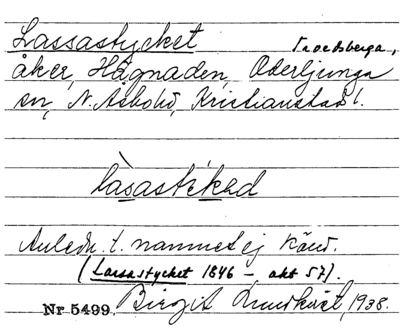 Lassastycket Troedsberga,
åker, Hägnaden, Oderljunga
sn, N. Åsbohd, Kristianstad l.
làsastíkəd
Anledn. t. namnet ej känd.
(Lassastycket 1846 – akt 57).
Nr 5499. Birgit Lundkvist, 1938.